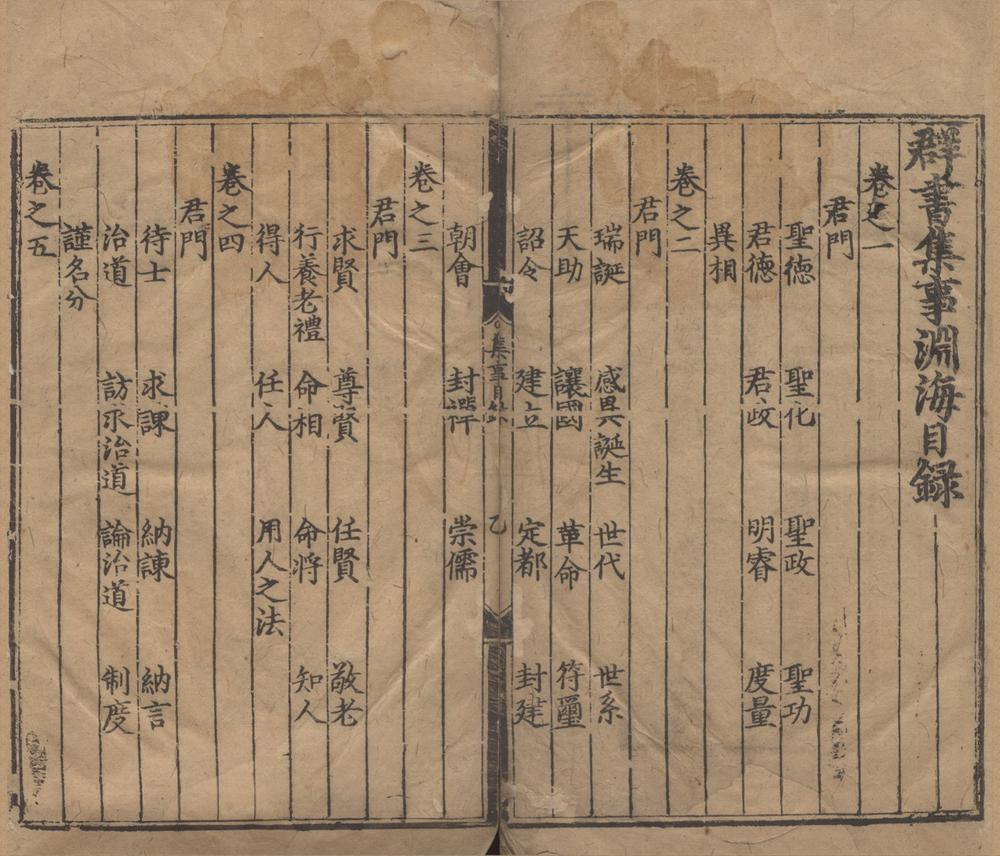 群書集事淵海目録
卷之一
君門
聖德 聖化 聖政 聖功
君德 君政 明睿 度量
異相
卷之二
君門
瑞誕 感異誕生 世代 世系
天助 讓國 革命 符璽
詔令 建立 定都 封建
集事目錄 乙
朝會 封禪 崇儒
卷之三
君門
求賢 尊賢 任賢 敬老
行養老禮 命相 命將 知人
得人 任人 用人之法
卷之四
君門
待士 求諫 納諫 納言
治道 訪求治道 論治道 制度
謹名分
卷之五